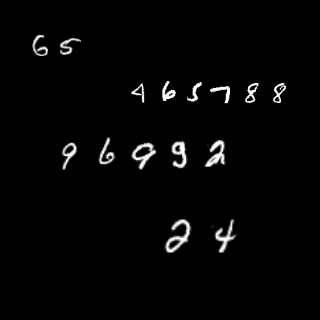 65
465788
96992
24